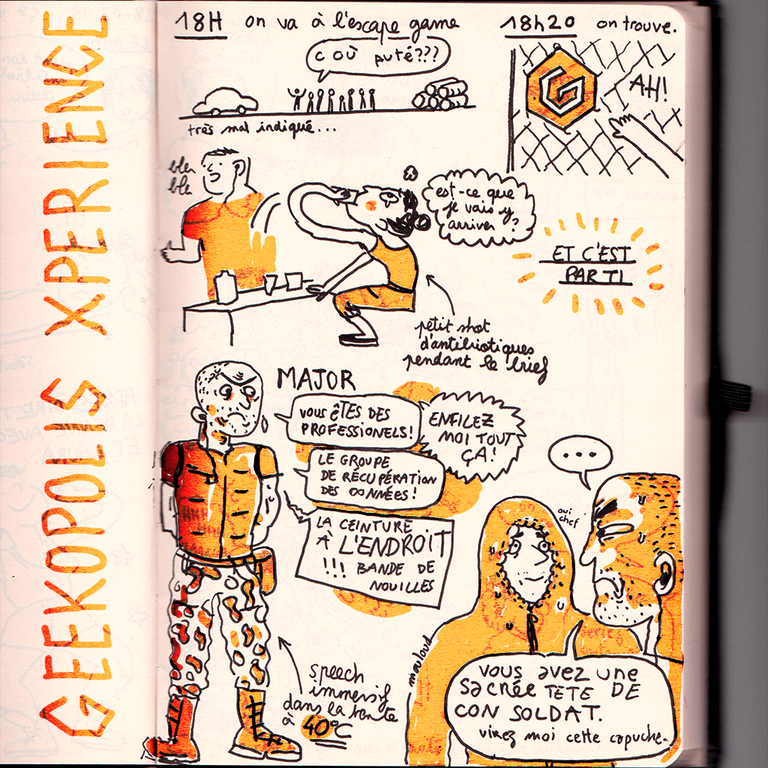 GEEKOPOLIS XPERIENCE
18H on va à l'escape game
C OÙ puté???
très mal indiqué...
18h20 on trouve.
G
AH!
bla
bla
est-ce que
je vais y
arriver ?
ET C'EST
PARTI
petit shot
d'antibiotiques
pendant le brief
MAJOR
VOUS ÊTES DES
PROFESSIONELS!
ENFILEZ
MOI TOUT
ÇA!
LE GROUPE
DE RÉCUPÉRATION
DES DONNÉES!
LA CEINTURE
À L'ENDROIT
!!! BANDE DE
NOUILLES
speech
immersif
dans la tente
à 40°C
...
oui
chef
mouloud
VOUS avez une
Sacrée TETE DE
CON SOLDAT.
virez moi cette capuche.